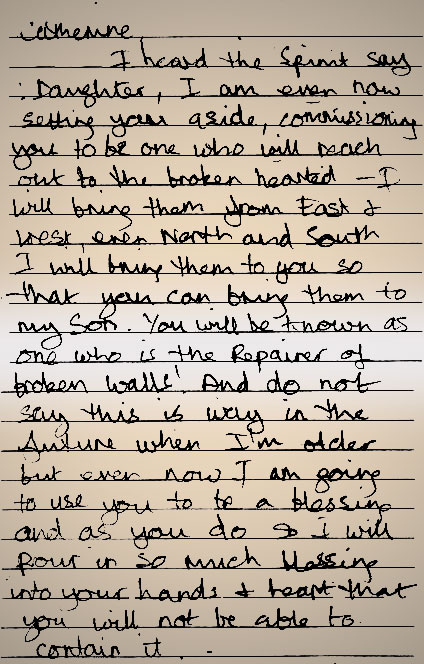 Catherine,
I heard the Spirit say
: Daughter, I am even now
setting you aside, commissioning
you to be one who will reach
out to the broken hearted - I
will bring them from East &
West, even North and South
I will bring them to you so
that you can bring them to
my Son. You will be known as
one who is the Repairer of
broken walls! And do not
say this is way in the
future when I'm older
but even now I am going
to use you to be a blessing
and as you do so I will
pour in so much blessing
into your hands & heart that
you will not be able to
contain it. -